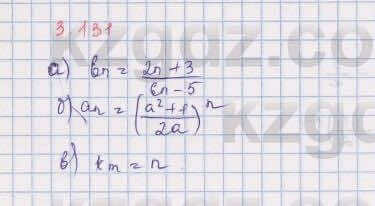 3.131
а) bn = (2n + 3)/(6n - 5)
б) an = ((a² + 1)/2a)ⁿ
в) xm = n
kzgdz.com